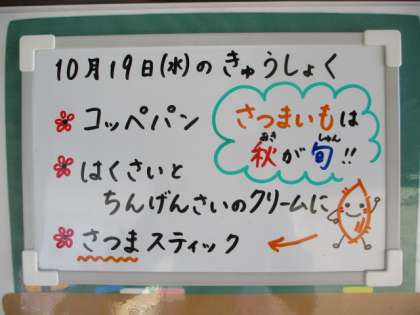 10月19日(水)のきゅうしょく
コッペパン
さつまいもは
秋が旬!!
あき しゅん
はくさいと
ちんげんさいのクリームに
さつまスティック